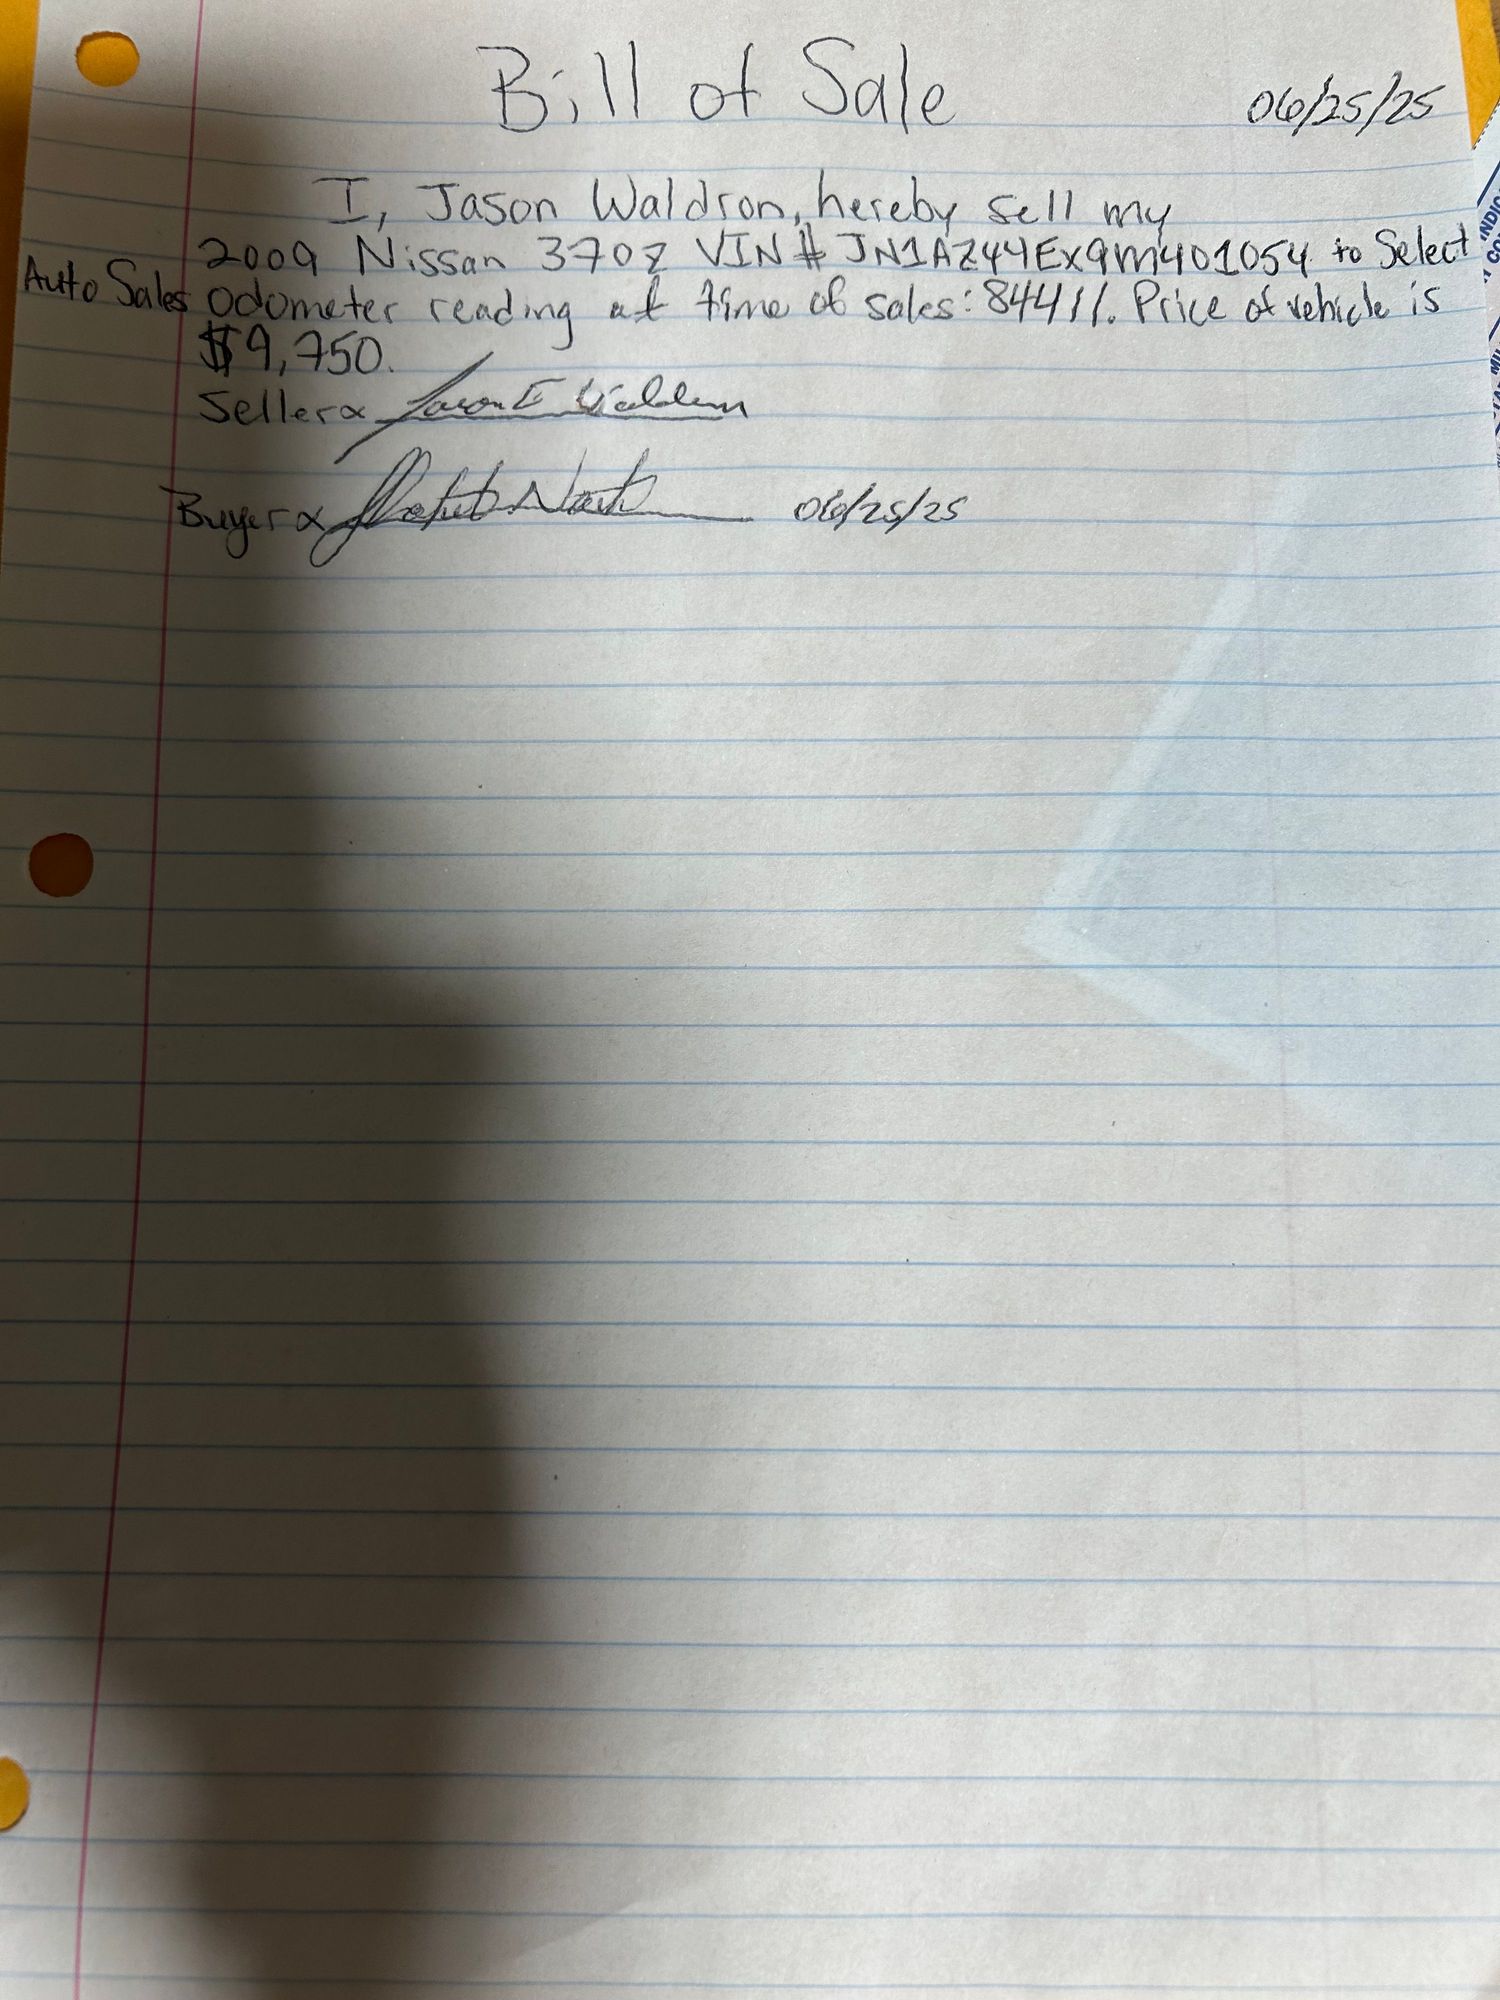 Bill of Sale 06/25/25
I, Jason Waldron, hereby sell my
2009 Nissan 370z VIN # JN1AZ44EX9M401054 to Select
Auto Sales odometer reading at time of sales: 84411. Price of vehicle is
$9,750.
Seller x Jason E Waldron
Buyer x 06/25/25